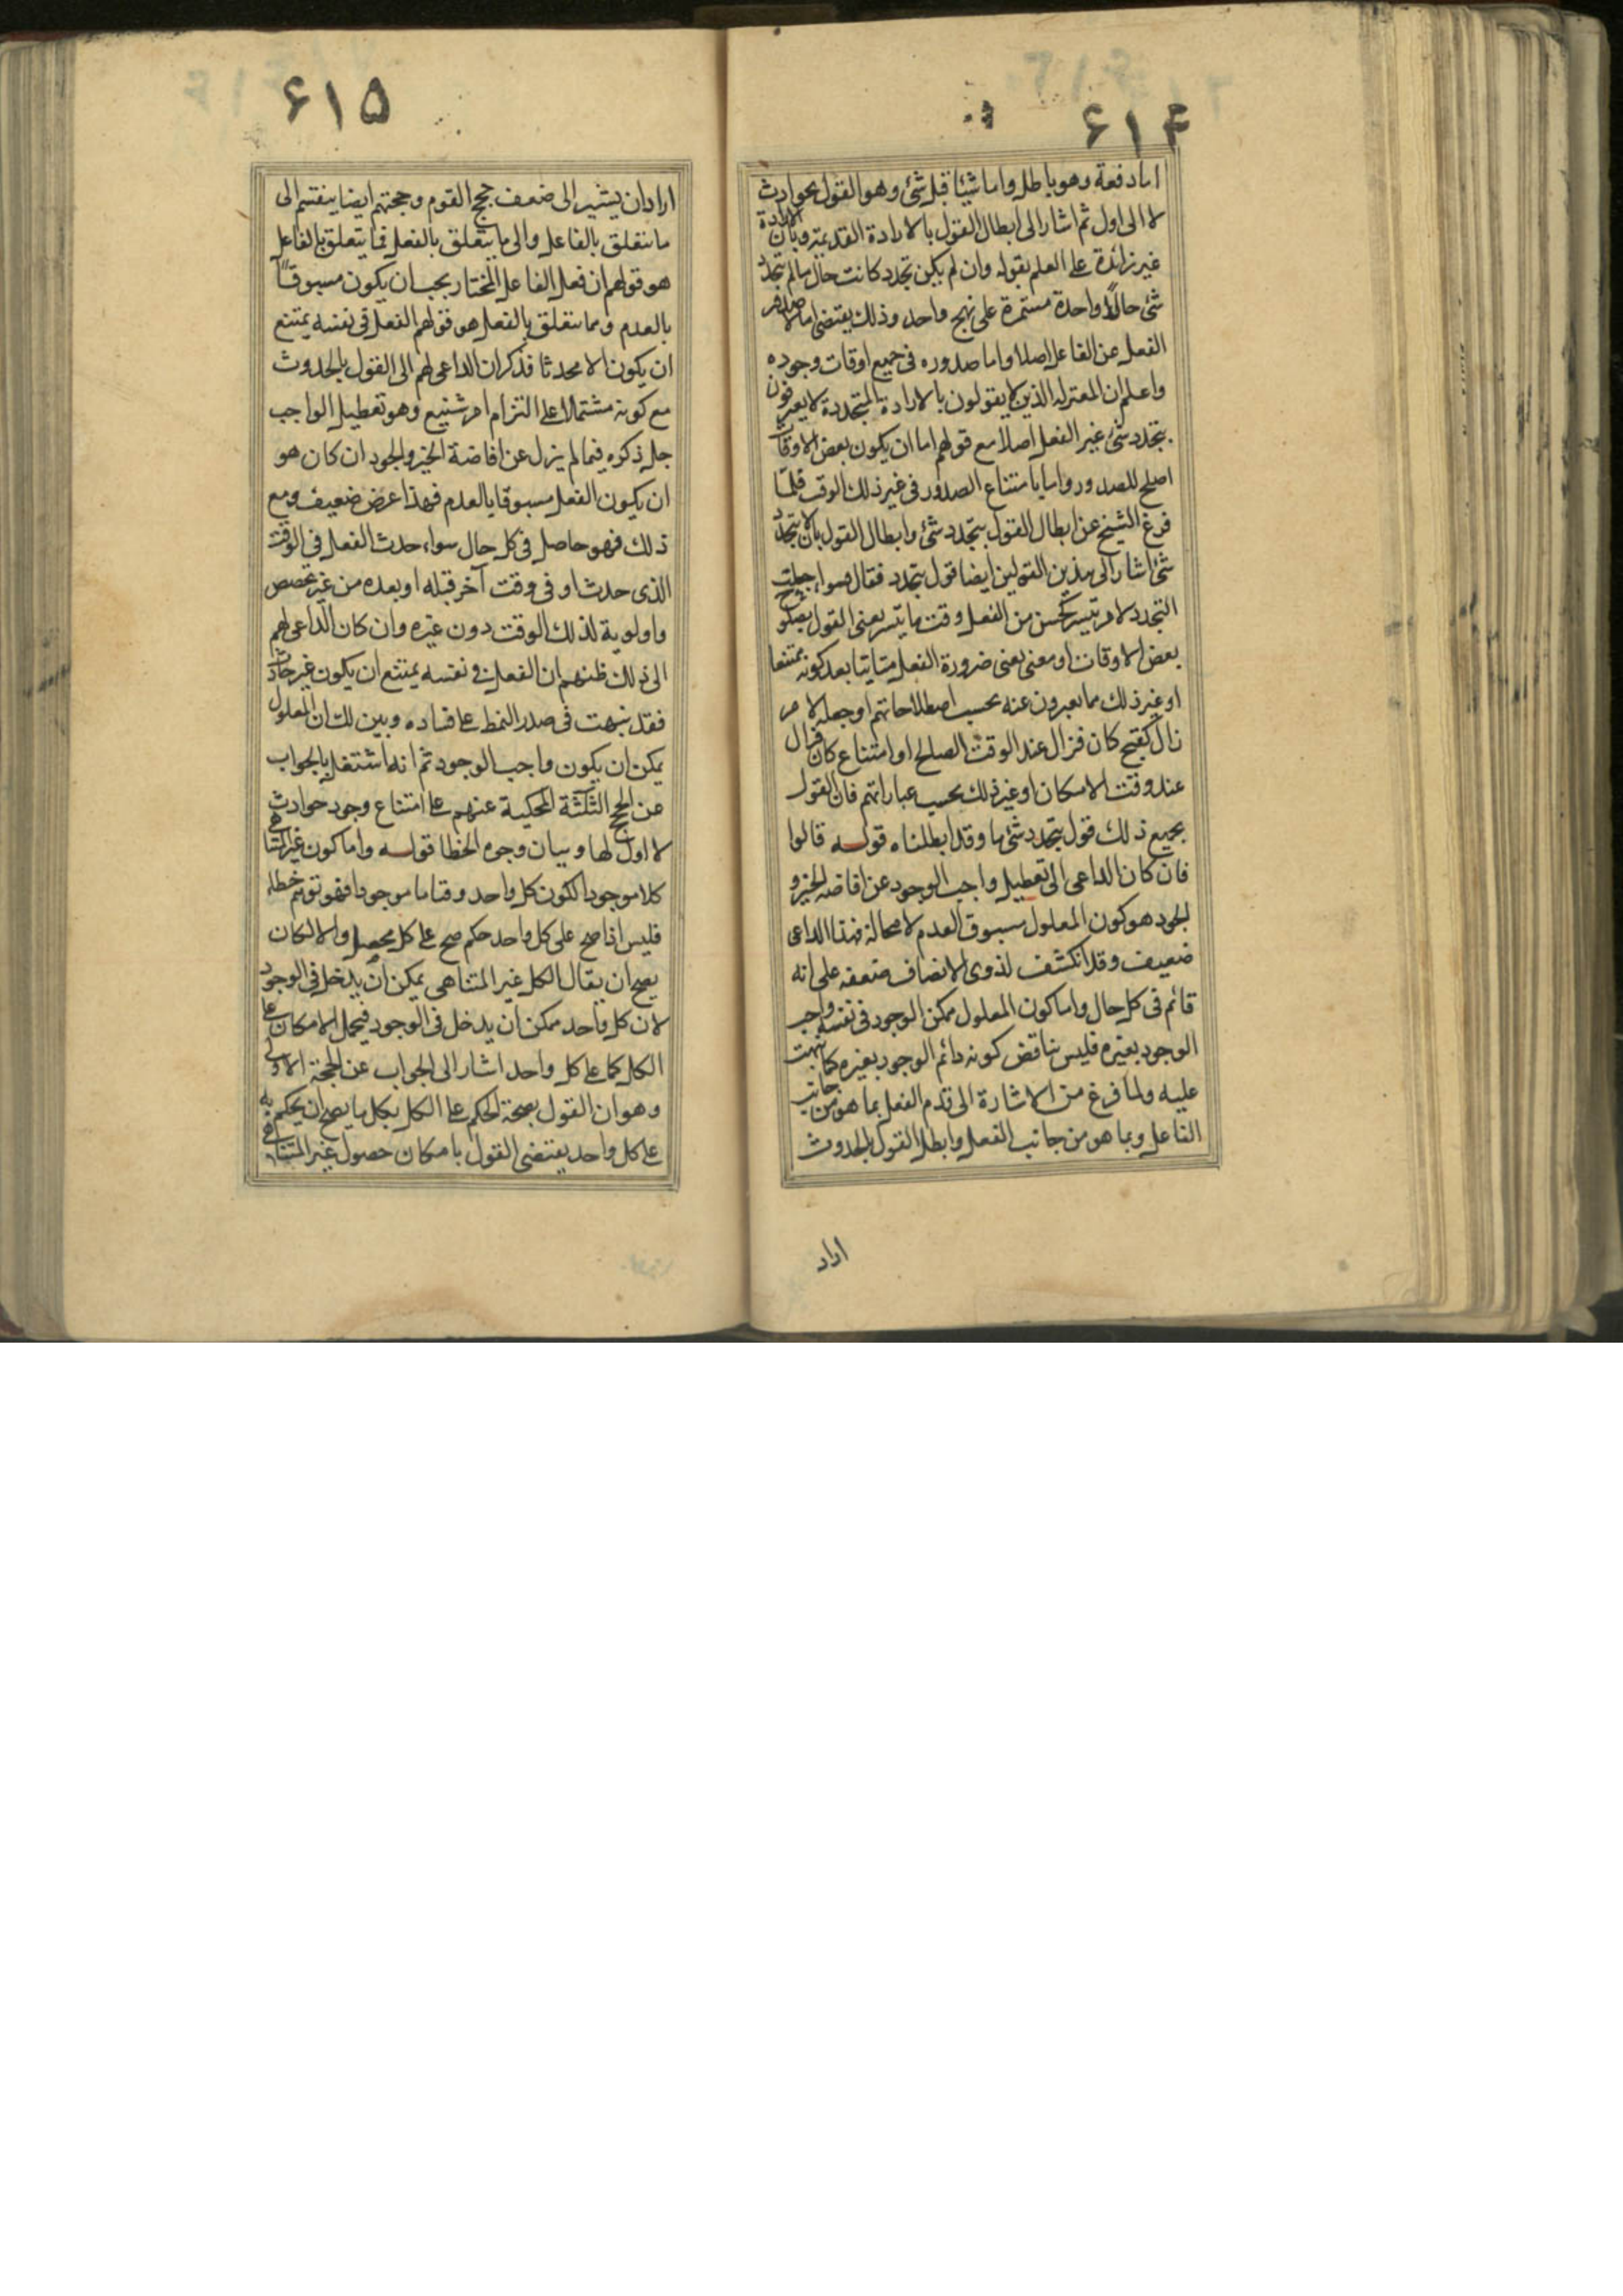 ۶۱۴
اما دفعة وهو باطل واما شيئا قبل شئ وهو القول بحوادث
لا الى اول ثم اشار الى ابطال القول بالارادة القديمة وبان الارادة
غير زائدة على العلم بقوله وان لم يكن تجدد كانت حال مالم يتجدد
شئ حالا واحدة مستمرة على نهج واحد وذلك يقتضى اما لا صدور
الفعل عن الفاعل اصلا واما صدوره فى جميع اوقات وجوده
واعلم ان المعتزله الذين لا يقولون بالارادة المتجددة لا يعبرفون
بتجدد شئ غير الفعل اصلا مع قولهم اما ان يكون بعض الاوقات
اصلح للصدور واما بامتناع الصدور فى غير ذلك الوقت فلما
فرغ الشيخ عن ابطال القول بتجدد شئ وابطال القول بان لا يتجدد
شئ اشار الى هذين القولين ايضا قول بتجدد فقال وسواء جعلت
التجدد لامر تيسر كحسن من الفعل وقت ما تيسر يعنى القول بصلوح
بعض الاوقات او معنى يعنى ضرورة الفعل متاتيا بعد كونه ممتنعا
او غير ذلك مما يعبرون عنه بحسب اصطلاحاتهم او جعله لامر
زال كقبح كان فزال عند الوقت الصلح او امتناع كان فزال
عند وقت الامكان او غير ذلك بحسب عباراتهم فان القول
بجميع ذلك قول بتجدد شئ ما وقد ابطلناه قوله قالوا
فان كان الداعى الى تعطيل واجب الوجود عن افاضه الخير و
الجود هو كون المعلول مسبوق العدم لا محالة فهذا الداعى
ضعيف وقد انكشف لذوى الانصاف ضعفه على انه
قائم فى كل حال واما كون المعلول ممكن الوجود فى نفسه واجب
الوجود بغيره فليس يناقض كونه دائم الوجود بغيره كما نبهت
عليه ولما فرغ من الاشارة الى قدم الفعل بما هو من جانب
الفاعل وبما هو من جانب الفعل وابطل القول بالحدوث
اراد
۶۱۵
اراد ان يشير الى ضعف حجج القوم وحجتهم ايضا ينقسم الى
ما يتعلق بالفاعل والى ما يتعلق بالفعل فما يتعلق بالفاعل
هو قولهم ان فعل الفاعل المختار يجب ان يكون مسبوقا
بالعدم ومما يتعلق بالفعل هو قولهم الفعل فى نفسه يمتنع
ان يكون الا محدثا فذكر ان الداعى لهم الى القول بالحدوث
مع كونه مشتملا على التزام امر شنيع وهو تعطيل الواجب
جل ذكره فيما لم يزل عن افاضة الخير والجود ان كان هو
ان يكون الفعل مسبوقا بالعدم فهذا عرض ضعيف ومع
ذلك فهو حاصل فى كل حال سواء حدث الفعل فى الوقت
الذى حدث او فى وقت آخر قبله او بعده من غير تخصص
واولوية لذلك الوقت دون غيره وان كان الداعى لهم
الى ذلك ظنهم ان الفعل فى نفسه يمتنع ان يكون غير حادث
فقد نبهت فى صدر النمط على فساده وبين لك ان المعلول
يمكن ان يكون واجب الوجود ثم انه اشتغل بالجواب
عن الحجج الثلثة المحكية عنهم على امتناع وجود حوادث
لا اول لها وبيان وجوه الخطا قوله واما كون غير المتناهى
كلا موجودا لكون كل واحد وقتا ما موجودا فهو توهم خطاء
فليس اذا صح على كل واحد حكم صح على كل محصل والا لكان
يصح ان يقال الكل غير المتناهى يمكن ان يدخل فى الوجود
لان كل واحد ممكن ان يدخل فى الوجود فيحمل الامكان على
الكل كما على كل واحد اشار الى الجواب عن الحجة الاولى
وهو ان القول بصحة الحكم على الكل بكل ما يصح ان يحكم به
على كل واحد يقتضى القول بامكان حصول غير المتناهى